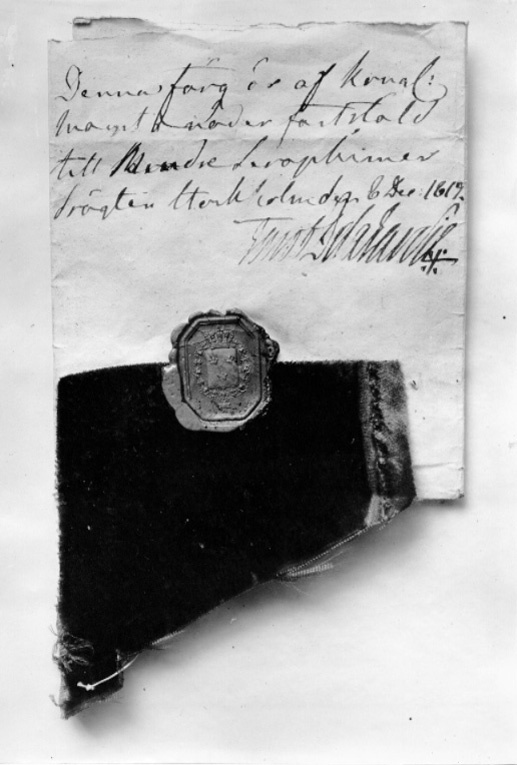 Denna färg är af Konugl:
Mayst i nåder fastställd
till Mindre Seraphimer
drägten Stockholm den 6 Dec: 1817.